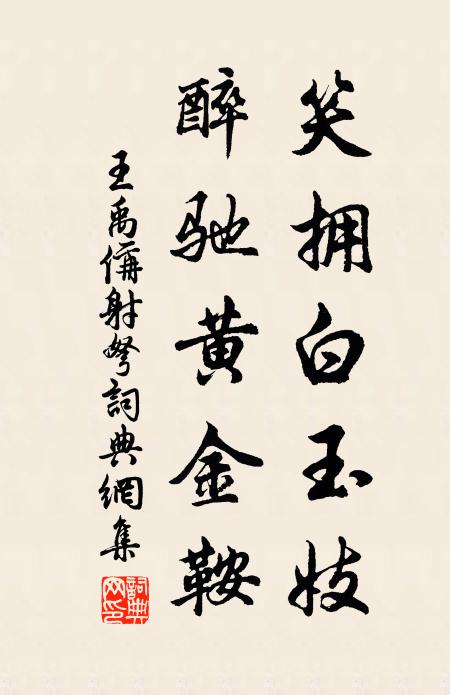 笑拥白玉妓
醉驰黄金鞍
王禹偁射弩詞典網集
詞典网印